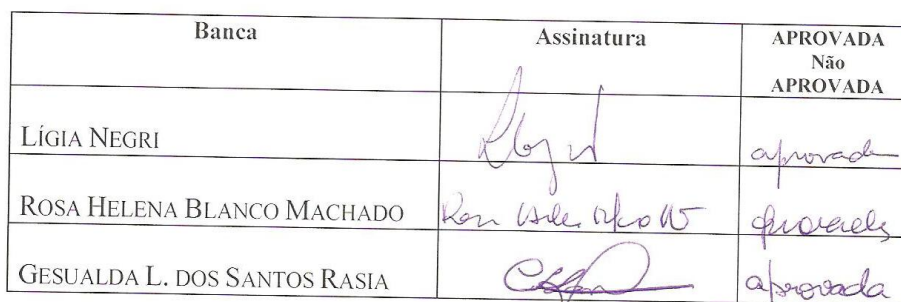 Banca Assinatura APROVADA
Não
APROVADA
LÍGIA NEGRI aprovada
ROSA HELENA BLANCO MACHADO aprovada
GESUALDA L. DOS SANTOS RASIA aprovada